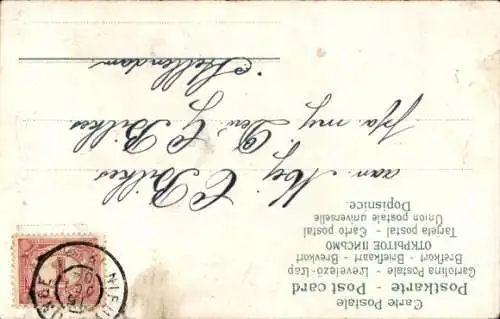 Carte Postale
Postkarte - Post card
Cartolina Postale - Levelező-Lap
Brefkort - Briefkaart - Brevkort
ОТКРЫТОЕ ПИСЬМО
Tarjeta postal - Carto postal
Union postale universelle
Dopisnice.
aan Mej C Bilkes
p/a my Dev. G C Bilkes
Stellendam